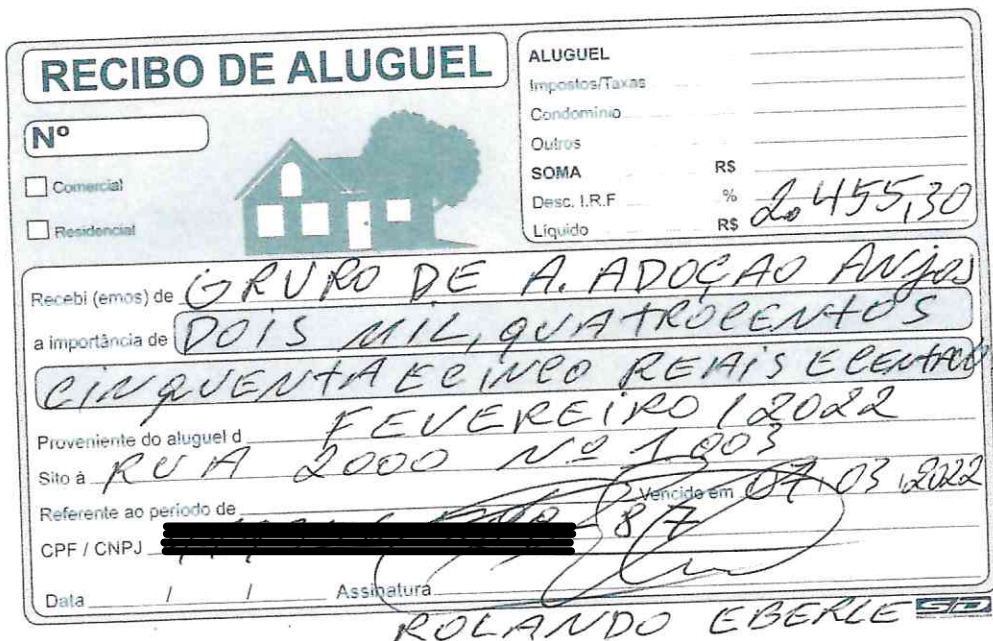 RECIBO DE ALUGUEL
Nº
Comercial
Residencial
ALUGUEL
Impostos/Taxas
Condomínio
Outros
SOMA R$
Desc. I.R.F %
Líquido R$ 2.455,30
Recebi (emos) de GRUPO DE A. ADOÇAO ANjos
a importância de DOIS MIL, QUATROCENTOS
CINQUENTA E CINCO REAIS E CENTAVOS
Proveniente do aluguel d FEVEREIRO / 2022
Sito à RUA 2000 Nº 1003
Referente ao período de Vencido em 07.03.2022
CPF / CNPJ 87
Data / / Assinatura
ROLANDO EBERLE SD